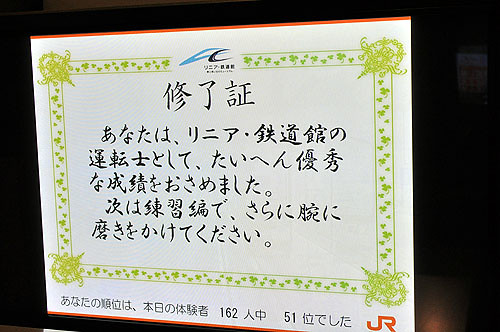 リニア・鉄道館
修了証
あなたは、リニア・鉄道館の
運転士として、たいへん優秀
な成績をおさめました。
次は練習編で、さらに腕に
磨きをかけてください。
あなたの順位は、本日の体験者 162 人中 51 位でした
JR